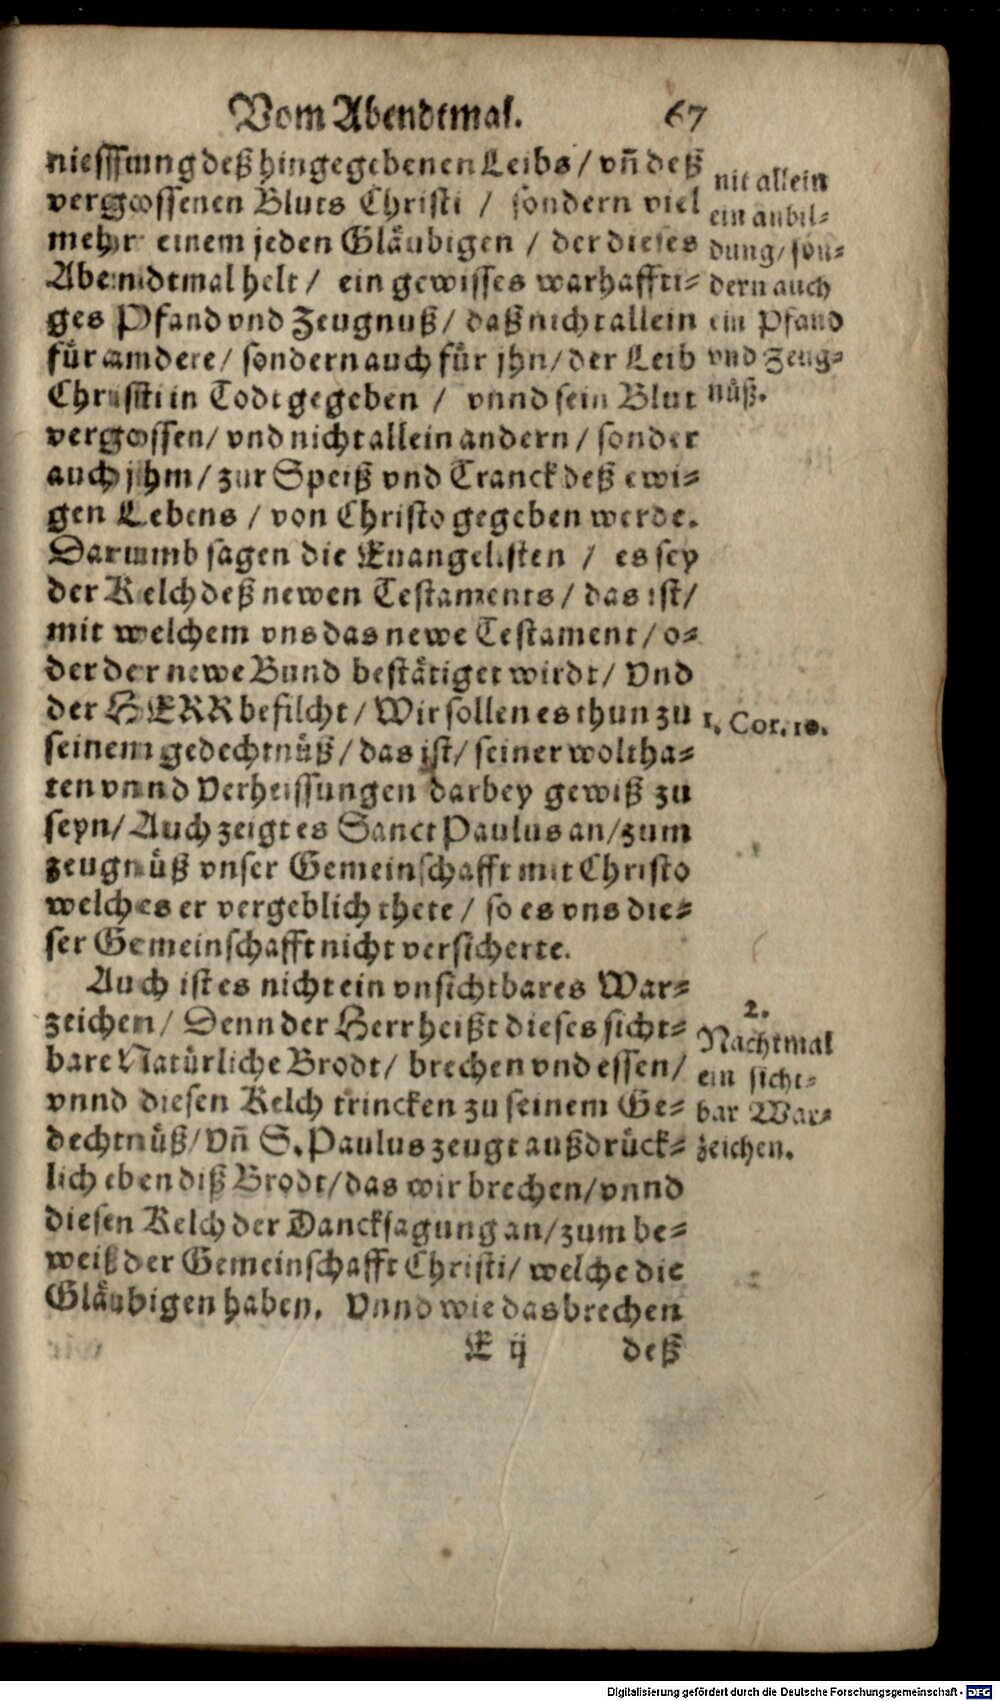 Vom Abendtmal. 67
niessung deß hingegebenen Leibs / vñ deß
vergossenen Bluts Christi / sondern viel
mehr einem jeden Gläubigen / der dieses
Abendtmal helt / ein gewisses warhaffti⸗
ges Pfand vnd Zeugnuß / daß nicht allein
für andere / sondern auch für jhn / der Leib
Christi in Todt gegeben / vnnd sein Blut
vergossen / vnd nicht allein andern / sonder
auch jhm / zur Speiß vnd Tranck deß ewi⸗
gen Lebens / von Christo gegeben werde.
Darumb sagen die Euangelisten / es sey
der Kelch deß newen Testaments / das ist /
mit welchem vns das newe Testament / o⸗
der der newe Bund bestätiget wirdt / Vnd
der HERR befilcht / Wir sollen es thun zu
seinem gedechtnüß / das ist / seiner woltha⸗
ten vnnd Verheissungen darbey gewiß zu
seyn / Auch zeigt es Sanct Paulus an / zum
zeugnüß vnser Gemeinschafft mit Christo
welches er vergeblich thete / so es vns die⸗
ser Gemeinschafft nicht versicherte.
Auch ist es nicht ein vnsichtbares War⸗
zeichen / Denn der Herr heißt dieses sicht⸗
bare Natürliche Brodt / brechen vnd essen /
vnnd diesen Kelch trincken zu seinem Ge⸗
dechtnüß / Vñ S. Paulus zeugt außdrück⸗
lich eben diß Brodt / das wir brechen / vnnd
diesen Kelch der Dancksagung an / zum be⸗
weiß der Gemeinschafft Christi / welche die
Gläubigen haben. Vnnd wie das brechen
E ij deß
nit allein
ein anbil⸗
dung / son⸗
dern auch
ein Pfand
vnd Zeug⸗
nüß.
1. Cor. 10.
2.
Nachtmal
ein sicht⸗
bar War⸗
zeichen.
Digitalisierung gefördert durch die Deutsche Forschungsgemeinschaft - DFG